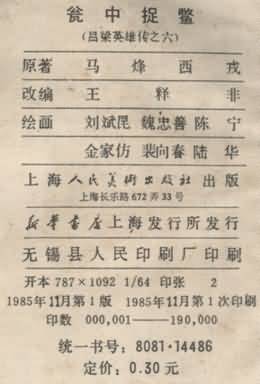 瓮中捉鳖
(吕梁英雄传之六)
原著 马烽 西戎
改编 王释非
绘画 刘斌昆 魏忠善 陈宁
金家仿 裴向春 陆华
上海人民美术出版社出版
上海长乐路672弄33号
新华书店上海发行所发行
无锡县人民印刷厂印刷
开本787×1092 1/64 印张 2
1985年11月第1版 1985年11月第1次印刷
印数 000,001——190,000
统一书号：8081·14486
定价：0.30元